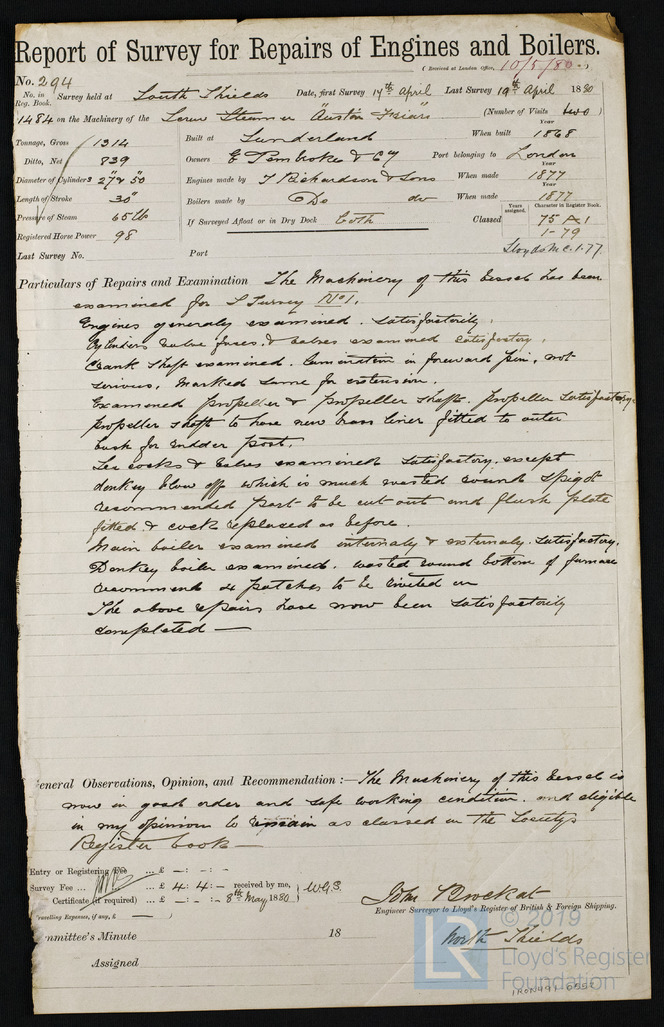 Report of Survey for Repairs of Engines and Boilers.
(Received at London Office, 10/5/80 )
No. 294
No. in Reg. Book. Survey held at South Shields Date, first Survey 14th April Last Survey 19th April 1880
1484 on the Machinery of the Screw Steamer "Auston Friars" (Number of Visits two )
Tonnage, Gross 1314 Built at Sunderland When built Year 1868
Ditto, Net 839 Owners E Pembroke & Cy Port belonging to London
Diameter of Cylinders 27" & 50 Engines made by T Richardson & Sons When made Year 1877
Length of Stroke 30" Boilers made by Do do When made Year 1877
Pressure of Steam 65 lb If Surveyed Afloat or in Dry Dock both Classed Years assigned. Character in Register Book. 75 A 1
Registered Horse Power 98 1-79
Last Survey No. Port Lloyds M.C. 1.77
Particulars of Repairs and Examination The Machinery of this Vessel has been
examined for S Survey No 1.
Engines generally examined. Satisfactorily.
Cylinders valve faces, & valves examined satisfactory.
Crank Shaft examined. lamination in forward pin, not
serious, Marked same for extension.
Examined propeller & propeller shaft. propeller Satisfactory
propeller shaft to have new brass liner fitted to outer
bush for rudder post.
Sea cocks & valves examined Satisfactory. except
donkey blow off which is much wasted round spigot
recommended part to be cut out and flush plate
fitted & cock replaced as before.
Main boiler examined internally & externaly. Satisfactory.
Donkey boiler examined. wasted round bottom of furnace
recommend 4 patches to be riveted on
The above repairs have now been Satisfactorily
completed —
General Observations, Opinion, and Recommendation :— The Machinery of this Vessel is
now in good order and safe working condition. and eligible
in my opinion to remain as classed in the Society's
Register book —
Entry or Registering Fee ... £ — : — : —
Survey Fee ... ... £ 4 : 4 : — received by me, W.G.S.
Certificate (if required) ... £ — : — : — 8th May 1880
Travelling Expenses, if any, £ — )
John Brockat
Engineer Surveyor to Lloyd's Register of British & Foreign Shipping.
Committee's Minute 18 North Shields
Assigned
LR
© 2019
Lloyd's Register
Foundation
IRON491-0552